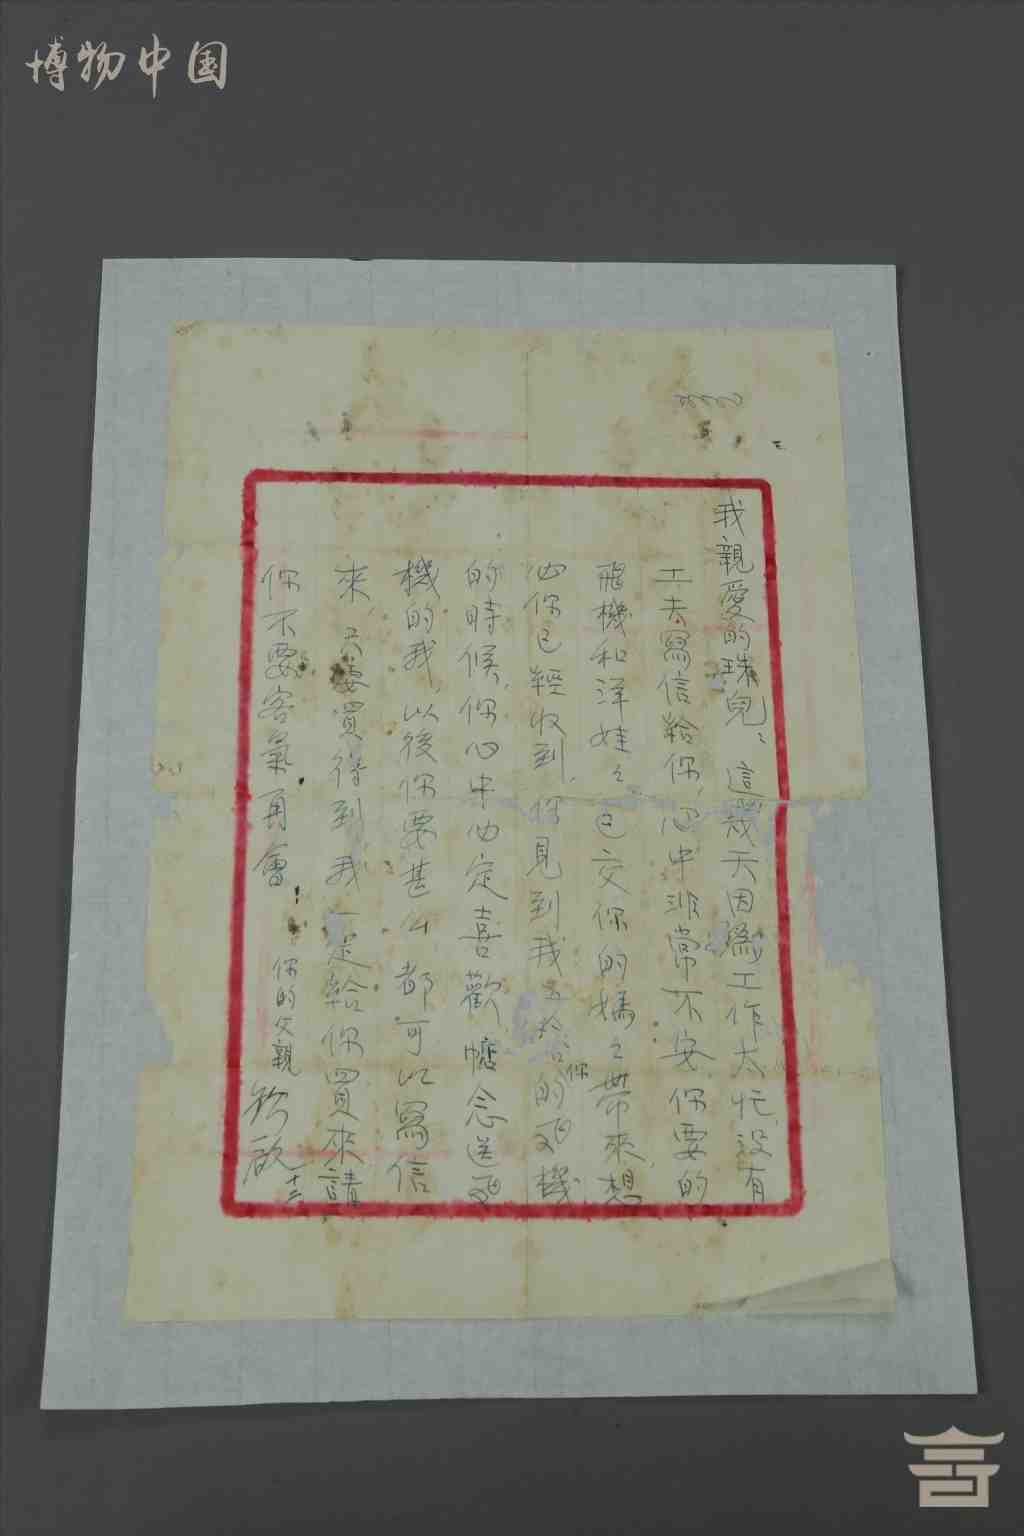 博物中国
我親愛的珠兒：這幾天因爲工作太忙，没有
工夫寫信給你，心中非常不安，你要的
飛機和洋娃々已交你的媽々帶來，想
必你已輕收到，你見到我送給你的飞機
的時候，你心中必定喜歡，惦念送飞
機的我，以後你要甚么都可以寫信
來，只要買得到我一定給你買來請
你不要客氣再會！
你的父親
十二